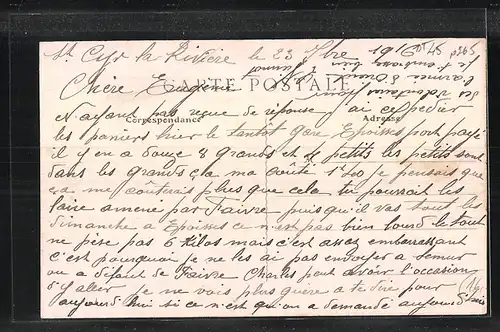 St Cyr la Rivière le 23 9bre 1916
Chère Eugénie
CARTE POSTALE
N'ayant pas reçue de réponse j'ai expedier
Correspondance Adresse
les paniers hier le tantot gare Epoisses port payé
il y en a douze 8 grands et 4 petits les petits sont
dans les grands çela ma coûté 1f20 je pensais que
ça me coûterais plus que cela tu pourrait les
faire amené par Faivre puisqu'il vas tout les
dimanche a Epoisses ce n'est pas bien lourd le tout
ne pèse pas 6 kilos mais c'est assez embarrassant
c'est pourquoi je ne les ai pas envoyer a Semur
ou a défaut de Faivre Charles peut avoir l'occasion
d'y aller je ne vois plus guère a te dire pour
aujourd'hui si ce n'est qu'on a demandé aujourd